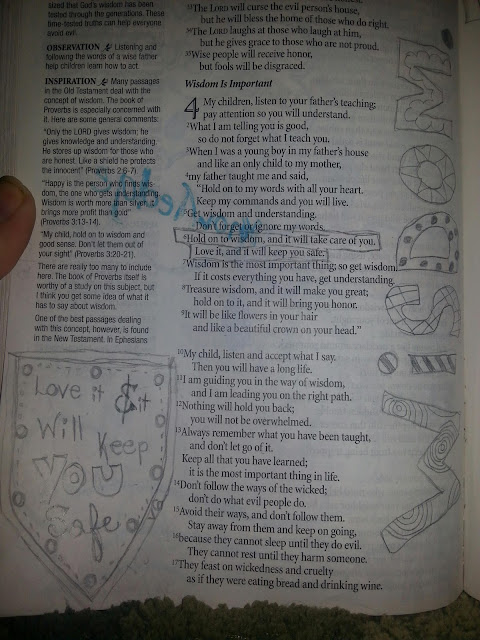 tested through the generations. These
time-tested truths can help everyone
avoid evil.
OBSERVATION Listening and
following the words of a wise father
help children learn how to act.
INSPIRATION Many passages
in the Old Testament deal with the
concept of wisdom. The book of
Proverbs is especially concerned with
it. Here are some general comments:
"Only the LORD gives wisdom; he
gives knowledge and understanding.
He stores up wisdom for those who
are honest. Like a shield he protects
the innocent" (Proverbs 2:6-7).
"Happy is the person who finds wis
dom, the one who gets understanding.
Wisdom is worth more than silver; it
brings more profit than gold"
(Proverbs 3:13-14).
"My child, hold on to wisdom and
good sense. Don't let them out of
your sight" (Proverbs 3:20-21).
There are really too many to include
here. The book of Proverbs itself is
worthy of a study on this subject, but
I think you get some idea of what it
has to say about wisdom.
One of the best passages dealing
with this concept, however, is found
in the New Testament. In Ephesians
Love it & it
Will Keep
YOU
Safe
33The LORD will curse the evil person's house,
but he will bless the home of those who do right.
34The LORD laughs at those who laugh at him,
but he gives grace to those who are not proud.
35Wise people will receive honor,
but fools will be disgraced.
Wisdom Is Important
4 My children, listen to your father's teaching;
pay attention so you will understand.
2What I am telling you is good,
so do not forget what I teach you.
3When I was a young boy in my father's house
and like an only child to my mother,
4my father taught me and said,
"Hold on to my words with all your heart.
Keep my commands and you will live.
5Get wisdom and understanding.
Don't forget or ignore my words.
6Hold on to wisdom, and it will take care of you.
Love it, and it will keep you safe.
7Wisdom is the most important thing; so get wisdom.
If it costs everything you have, get understanding.
8Treasure wisdom, and it will make you great;
hold on to it, and it will bring you honor.
9It will be like flowers in your hair
and like a beautiful crown on your head."
10My child, listen and accept what I say.
Then you will have a long life.
11I am guiding you in the way of wisdom,
and I am leading you on the right path.
12Nothing will hold you back;
you will not be overwhelmed.
13Always remember what you have been taught,
and don't let go of it.
Keep all that you have learned;
it is the most important thing in life.
14Don't follow the ways of the wicked;
don't do what evil people do.
15Avoid their ways, and don't follow them.
Stay away from them and keep on going,
16because they cannot sleep until they do evil.
They cannot rest until they harm someone.
17They feast on wickedness and cruelty
as if they were eating bread and drinking wine.
WiSDOM